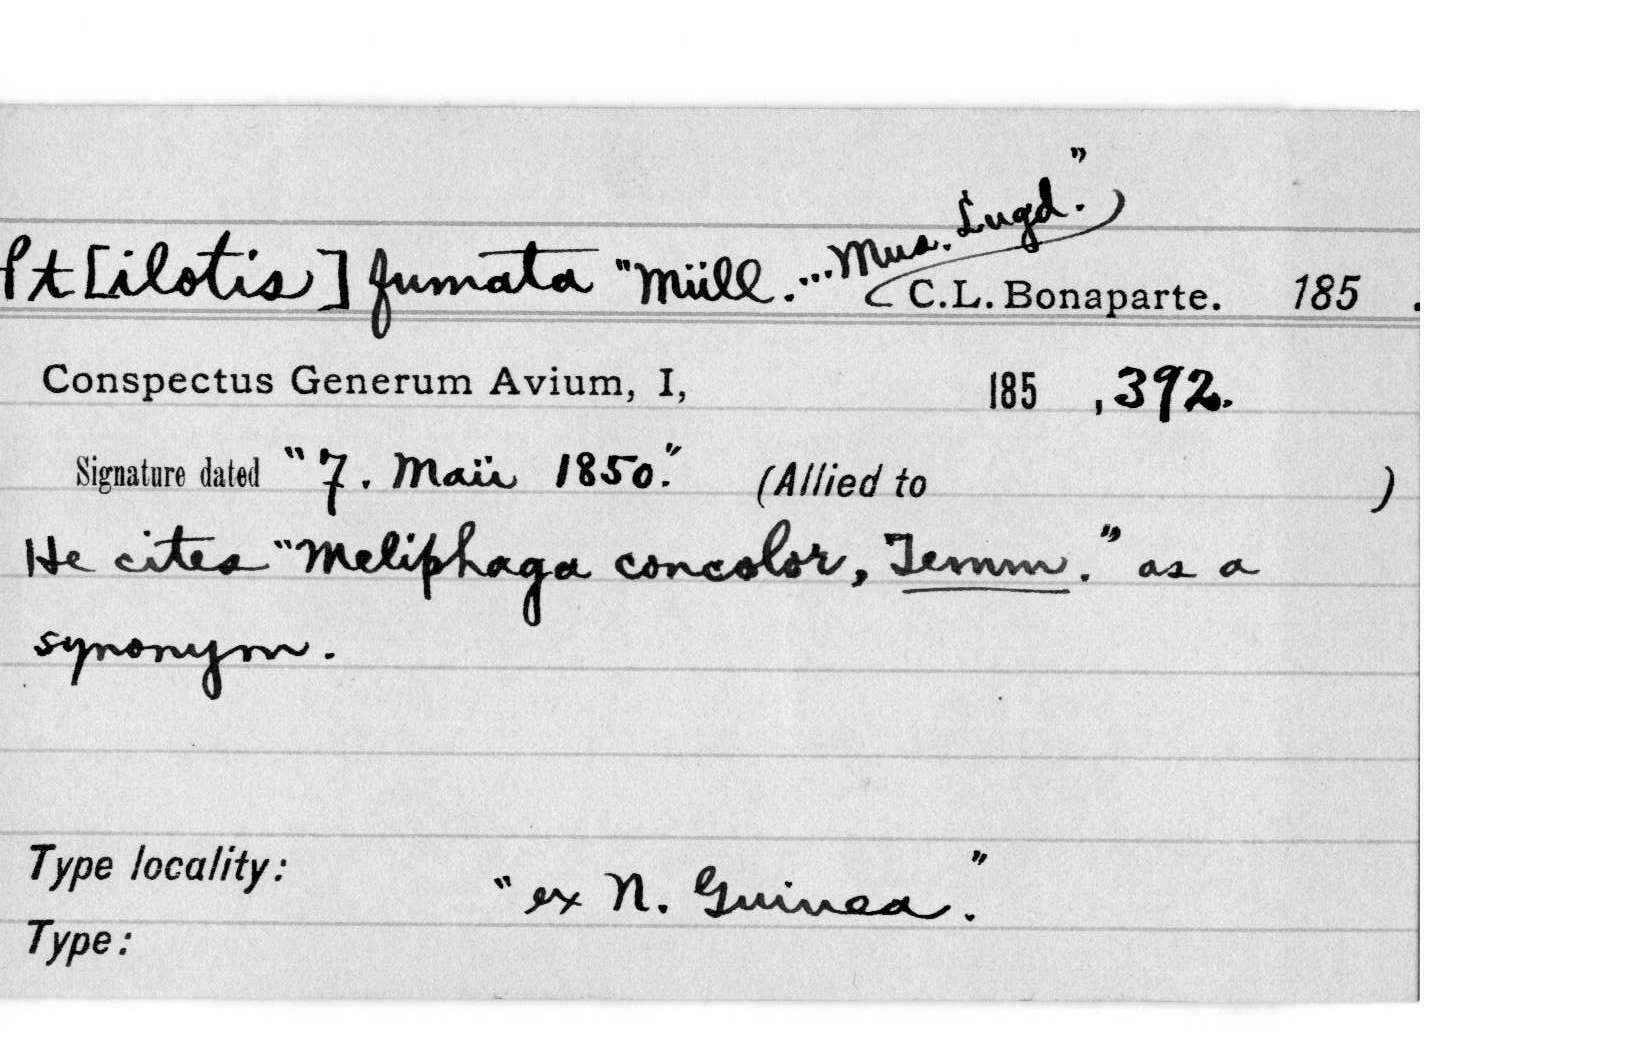 Pt[ilotis] fumata "Müll....Mus. Lugd.") C.L. Bonaparte. 185 .
Conspectus Generum Avium, I, 185 , 392.
Signature dated "7. Maii 1850." (Allied to )
He cites "Meliphaga concolor, Temm." as a
synonym.
Type locality: "ex N. Guinea."
Type: